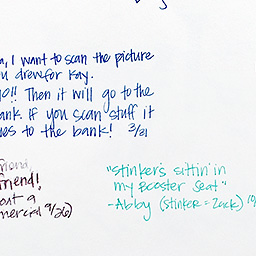 I want to scan the picture
drew for Kay.
!! Then it will go to the
ank. If you scan stuff it
es to the bank! 3/21
riend,
riend!
out a
mercial 9/26)
"Stinker's sittin' in
my Booster Seat"
- Abby (Stinker = Zack)